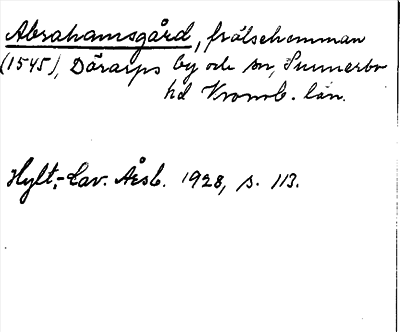 Abrahamsgård, frälsehemman
(1545), Dörarps by och sn, Sunnerbo
hd Kronob. län.
Hylt.-Cav. Årsb. 1928, s. 113.